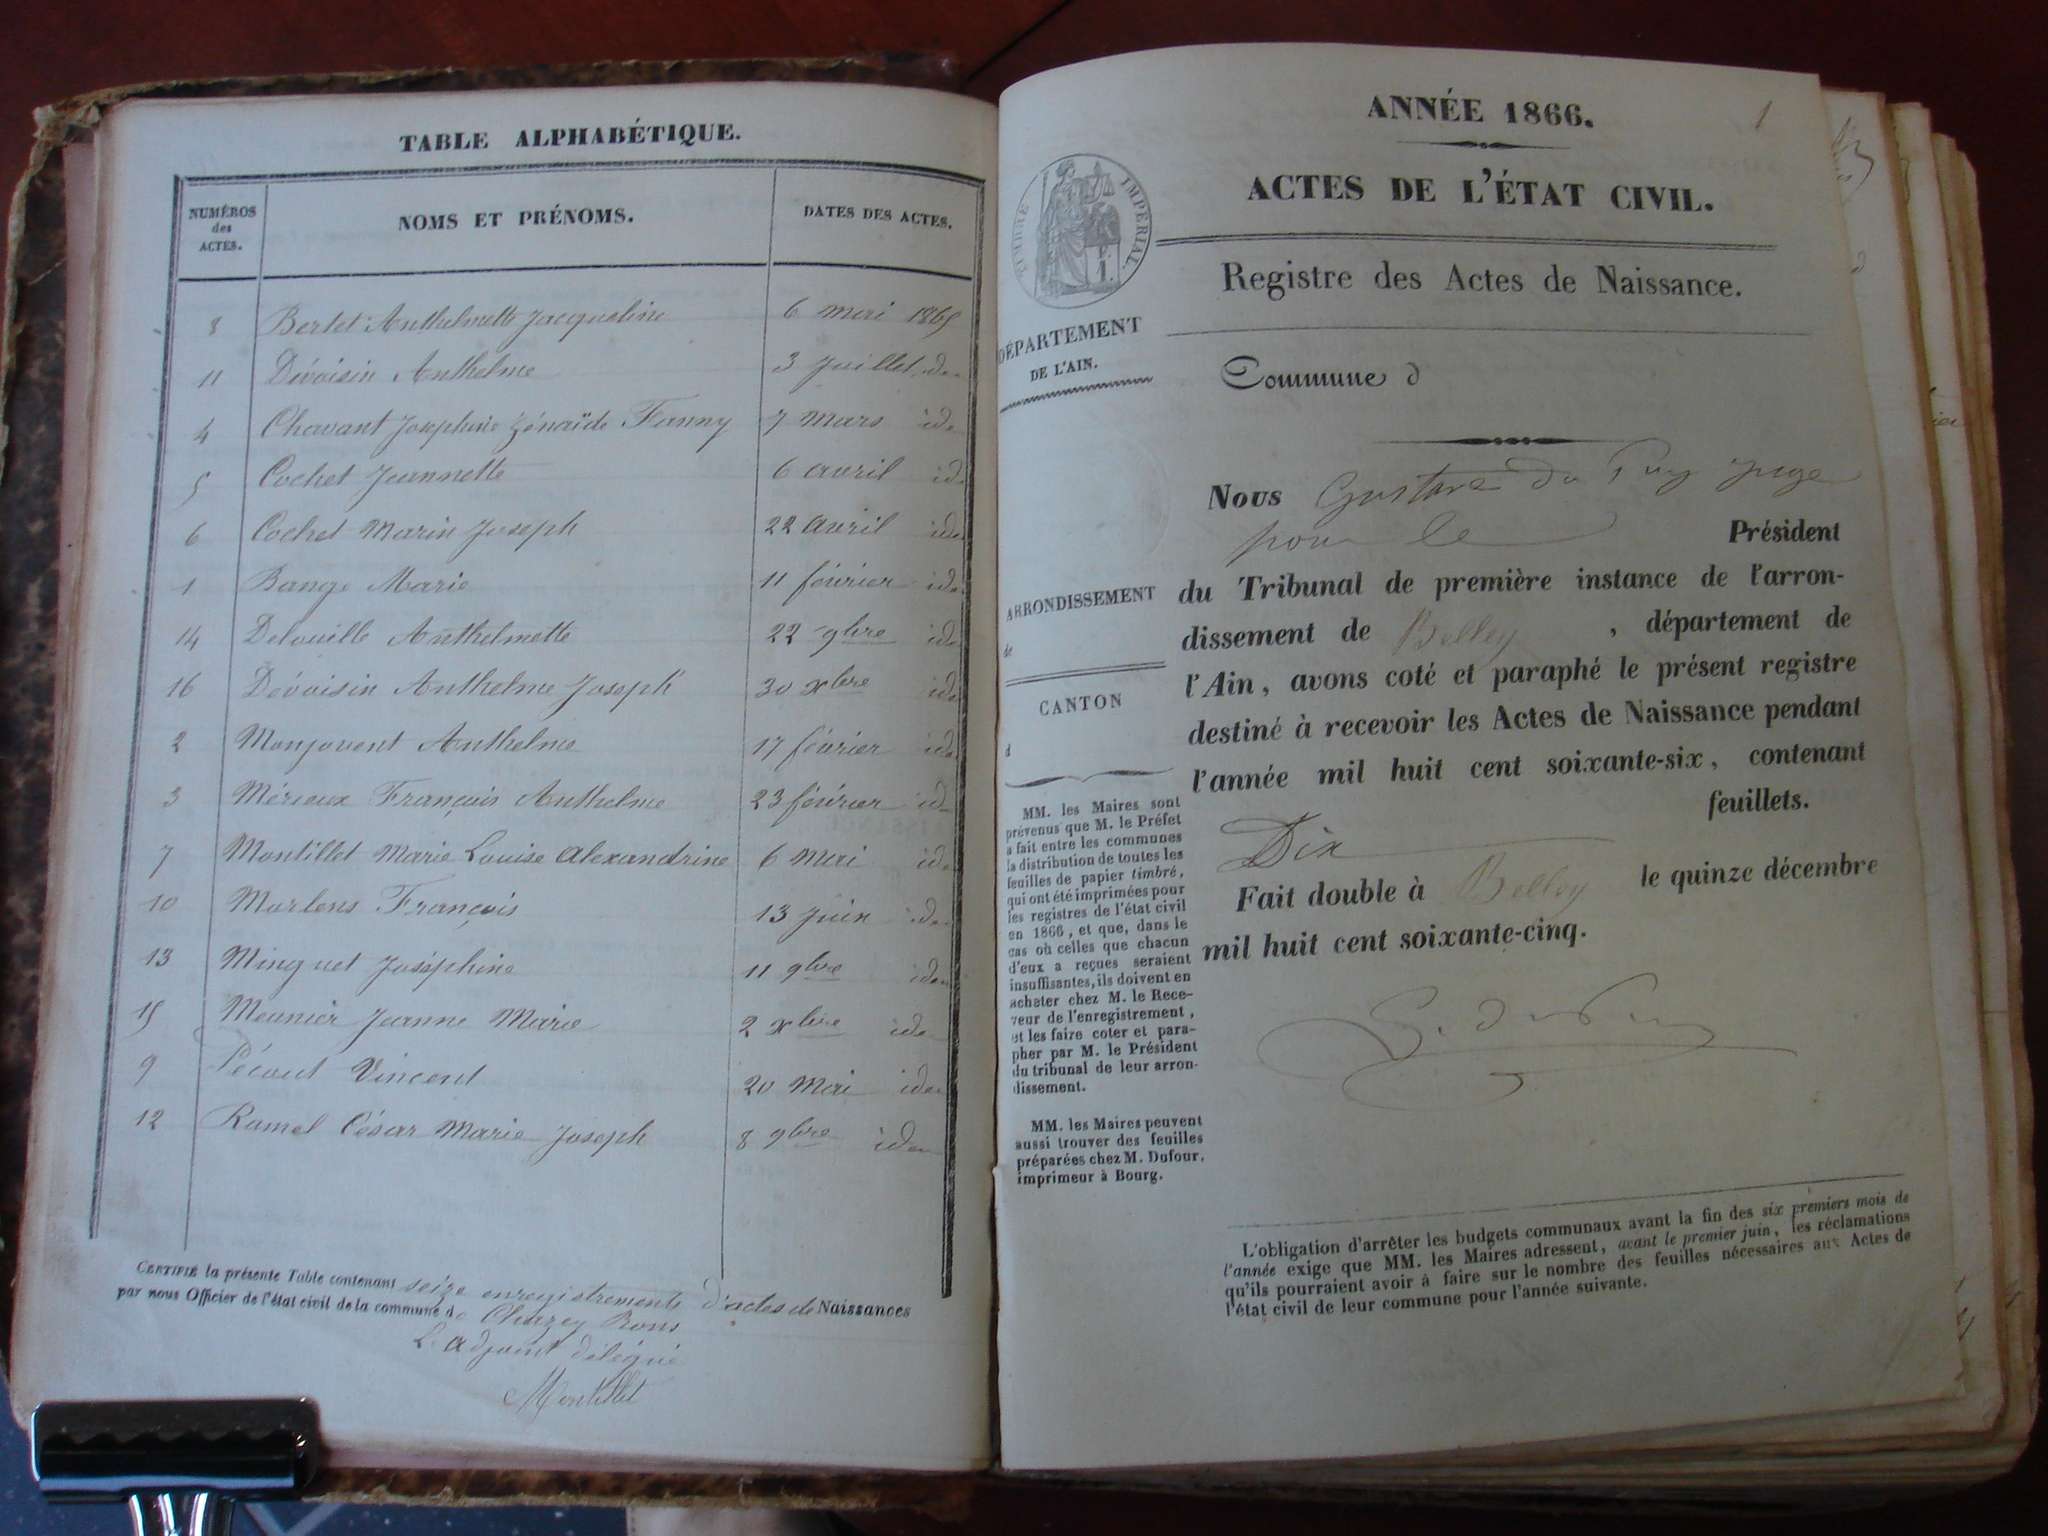 TABLE ALPHABÉTIQUE.
NUMÉROS des ACTES. NOMS ET PRÉNOMS. DATES DES ACTES.
8 Bertet Anthelmette Jacqueline 6 mai 1865
11 Dévoisin Anthelme 3 Juillet id.
4 Chavant Joséphine Zénaïde Fanny 7 Mars id.
5 Cochet Jeannette 6 avril id.
6 Cochet Marin Joseph 22 avril id.
1 Bange Marie 11 février id.
14 Delouille Anthelmette 22 9bre id.
16 Dévoisin Anthelme Joseph 30 xbre id.
2 Monjovent Anthelme 17 février id.
3 Mérieux François Anthelme 23 février id.
7 Montillet Marie Louise Alexandrine 6 Mai id.
10 Martens François 13 Juin id.
13 Minguet Joséphine 11 9bre id.
15 Meunier Jeanne Marie 2 xbre id.
9 Pécout Vincent 20 Mai id.
12 Ramel César Marie Joseph 8 9bre id.
CERTIFIÉ la présente Table contenant seize enregistrements d'actes de Naissances
par nous Officier de l'état civil de la commune de Chazey Bons
L'adjoint délégué
Montillet
1
ANNÉE 1866.
ACTES DE L'ÉTAT CIVIL.
TIMBRE IMPÉRIAL.
Registre des Actes de Naissance.
DÉPARTEMENT
DE L'AIN.
Commune d
Nous Gustave du Puy Juge
pour le Président
du Tribunal de première instance de l'arron-
dissement de Belley, département de
l'Ain, avons coté et paraphé le présent registre
destiné à recevoir les Actes de Naissance pendant
l'année mil huit cent soixante-six, contenant
Dix feuillets.
Fait double à Belley le quinze décembre
mil huit cent soixante-cinq.
G. du Puy
ARRONDISSEMENT
de
CANTON
d
MM. les Maires sont
prévenus que M. le Préfet
a fait entre les communes
la distribution de toutes les
feuilles de papier timbré,
qui ont été imprimées pour
les registres de l'état civil
en 1866, et que, dans le
cas où celles que chacun
d'eux a reçues seraient
insuffisantes, ils doivent en
acheter chez M. le Rece-
veur de l'enregistrement,
et les faire coter et para-
pher par M. le Président
du tribunal de leur arron-
dissement.
MM. les Maires peuvent
aussi trouver des feuilles
préparées chez M. Dufour,
imprimeur à Bourg.
L'obligation d'arrêter les budgets communaux avant la fin des six premiers mois de
l'année exige que MM. les Maires adressent, avant le premier juin, les réclamations
qu'ils pourraient avoir à faire sur le nombre des feuilles nécessaires aux Actes de
l'état civil de leur commune pour l'année suivante.